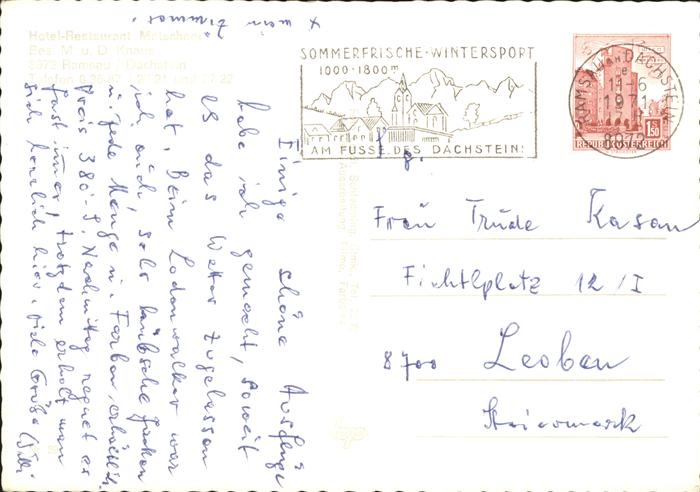 x mein
Zimmer!
Hotel-Restaurant Matschner
Bes. M. u. D. Knaus
8972 Ramsau / Dachstein
SOMMERFRISCHE-WINTERSPORT
1000-1800m
AM FUSSE DES DACHSTEIN!
RAMSAU AM DACHSTEIN
11-6
1971
8972
1.50
REPUBLIK ÖSTERREICH
Einige schöne Ausflüge
habe ich gemacht, soweit
es das Wetter zugelassen
hat. Beim Lodenwalker war
ich auch, sehr hübsche Jacken
in jede Menge u. Farben erhältlich.
Preis 380.-S. Nachmittag regnet es
fast immer, trotzdem erholt man
sich herrlich hier. Viele Grüße Willi
Frau Trude Kasan
Fichtlplatz 12/I
8700 Leoben
Steiermark